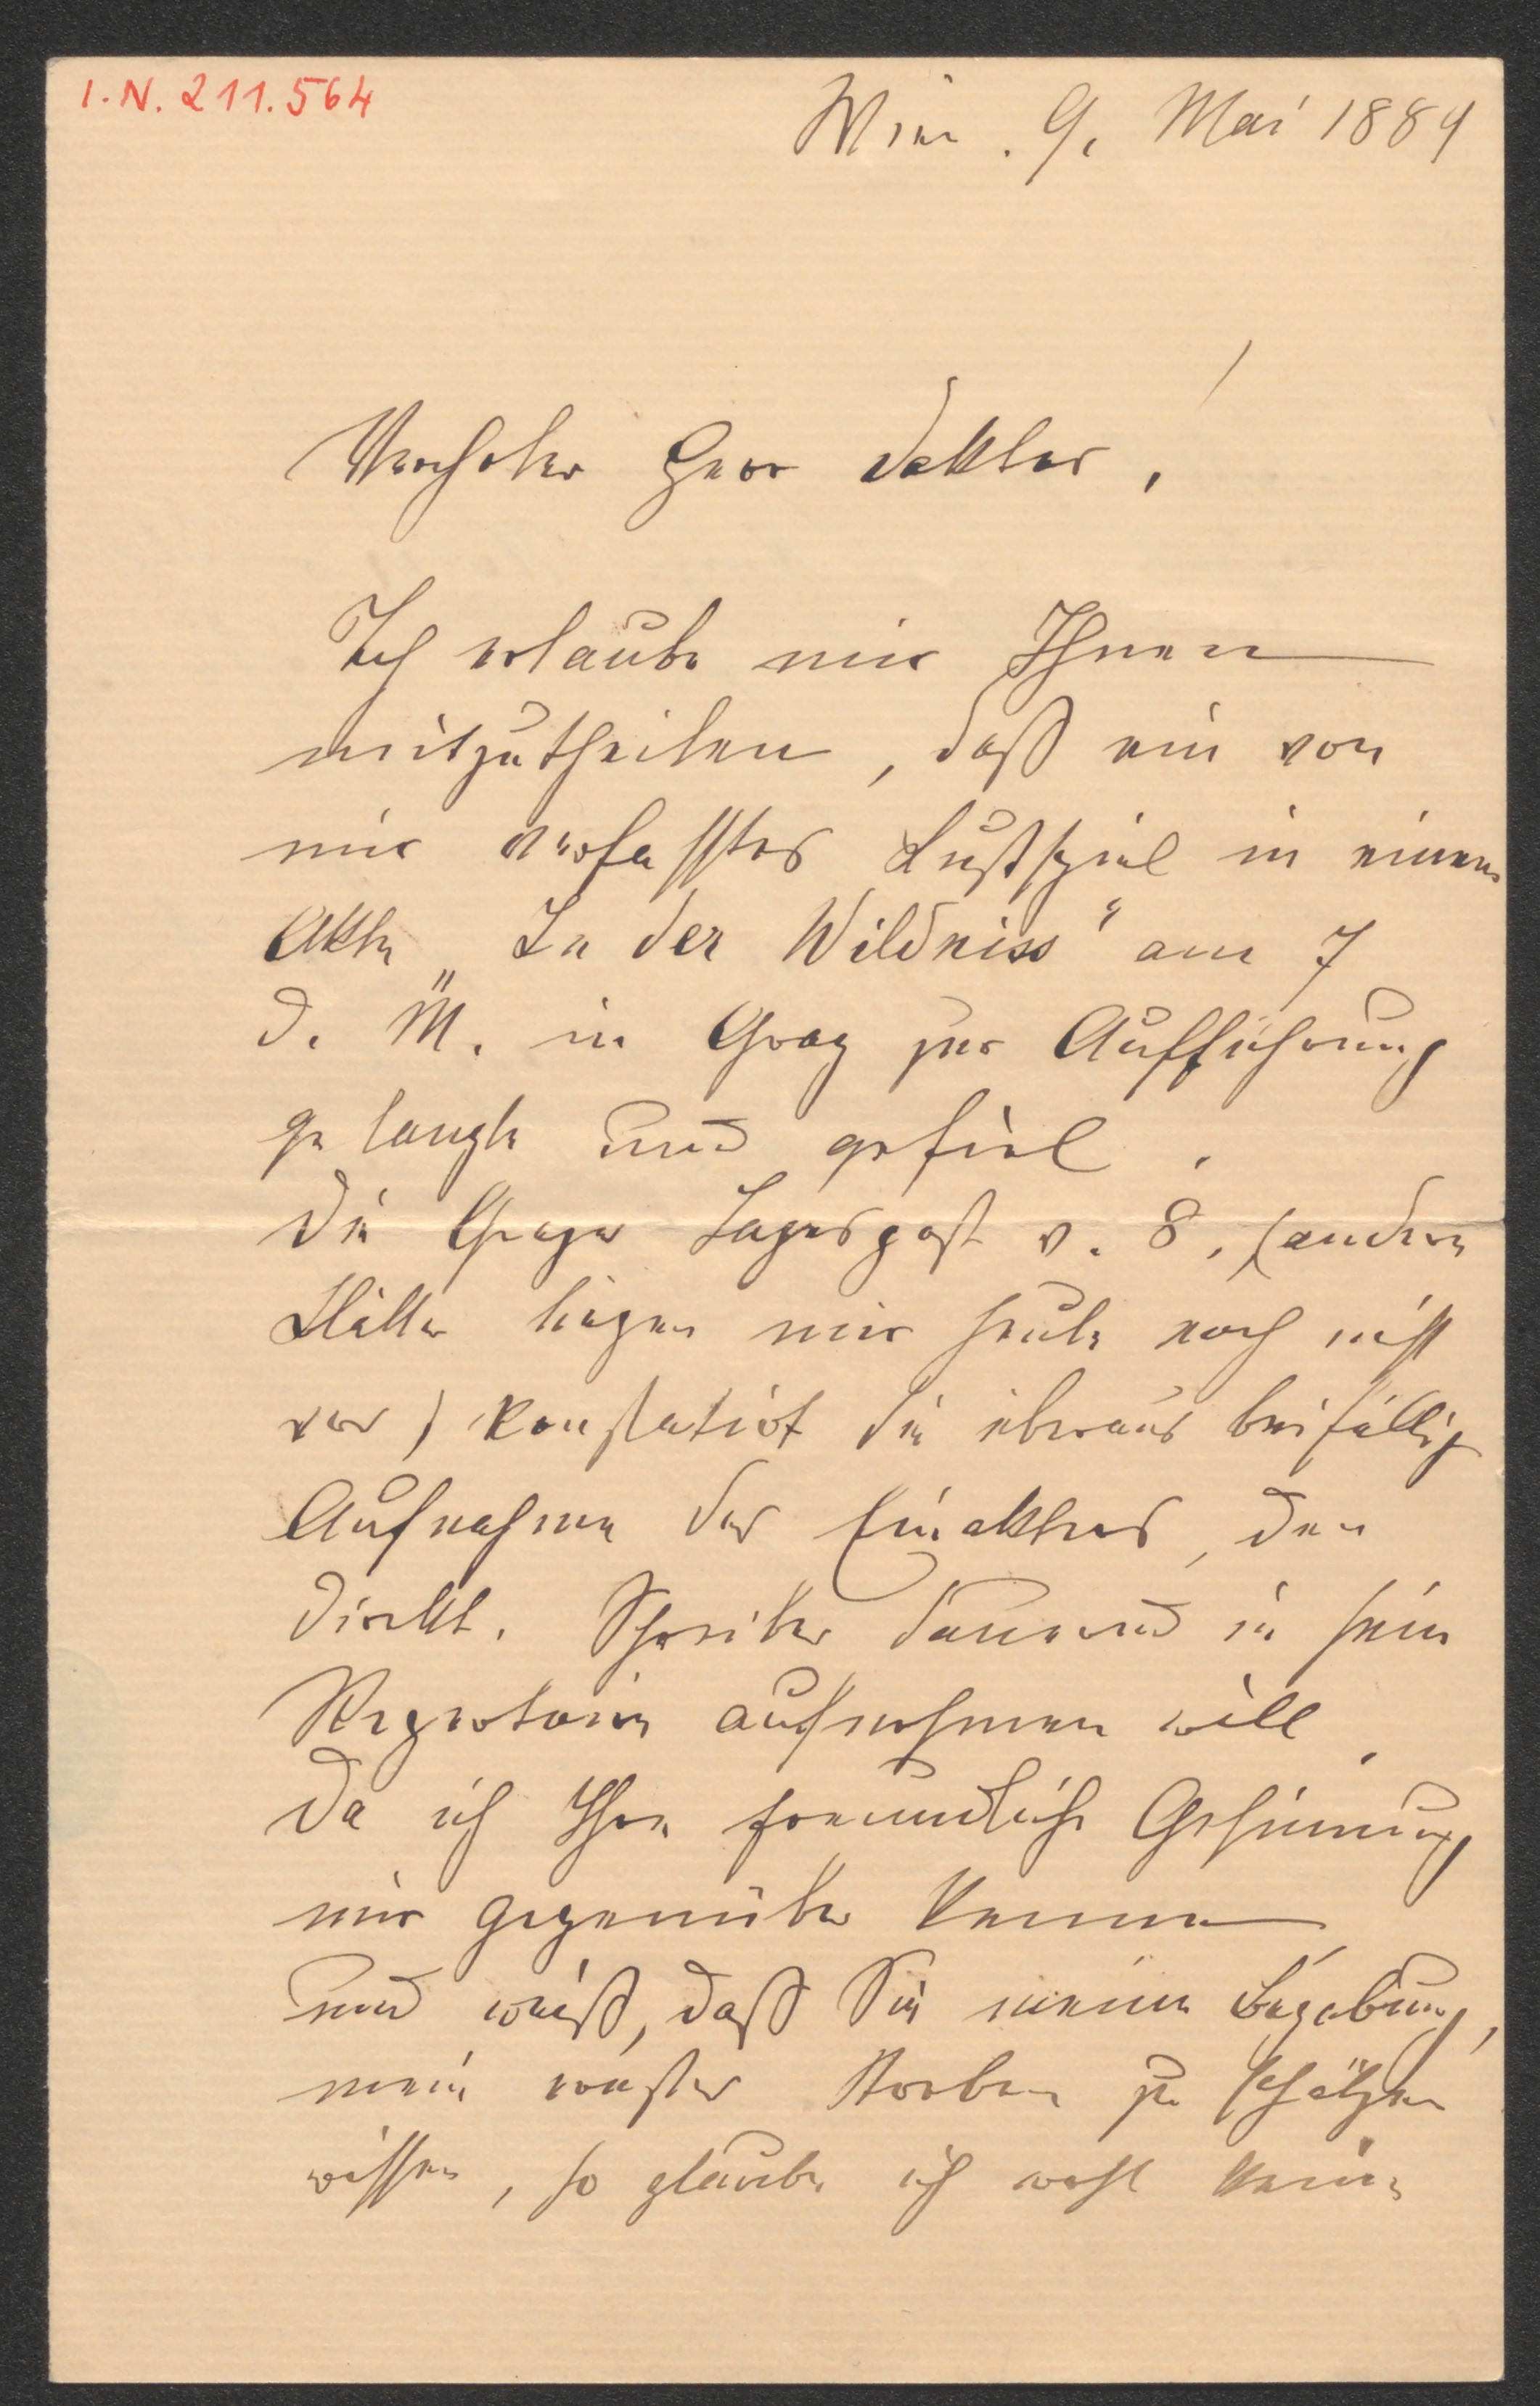 I.N. 211.564
Wien. 9. Mai 1884
Verehrter Herr Doktor!
Ich erlaube mir Ihnen
mitzutheilen, daß ein von
mir verfasstes Lustspiel in einem
Akte „In der Wildniss“ am 7
d. M. in Graz zur Aufführung
gelangte und gefiel.
Die Grazer Tagespost v. 8. (andere
Blätter liegen mir heute noch nicht
vor) konstatirt die überaus beifällige
Aufnahme des Einakters, den
Direkt. Schreiber dauernd in sein
Repertoire aufnehmen will.
Da ich Ihre freundliche Gesinnung
mir gegenüber kenne
und weiß, daß Sie meine Begabung,
mein ernstes Streben zu schätzen
wissen, so glaube ich wohl keine